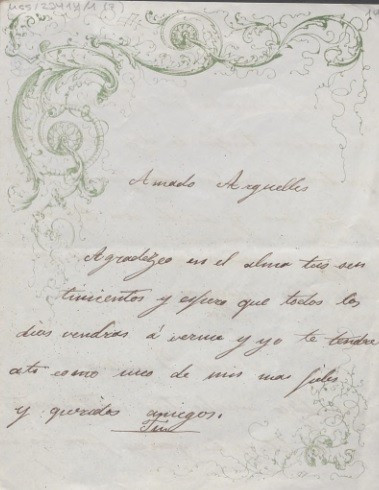 Mss/22414/1 (9)
Amado Arguelles
Agradezco en el alma tus sen
timientos y espero que todos los
dias vendras á verme y yo te tendre
como uno de mis mas fieles
y queridos amiegos.
5